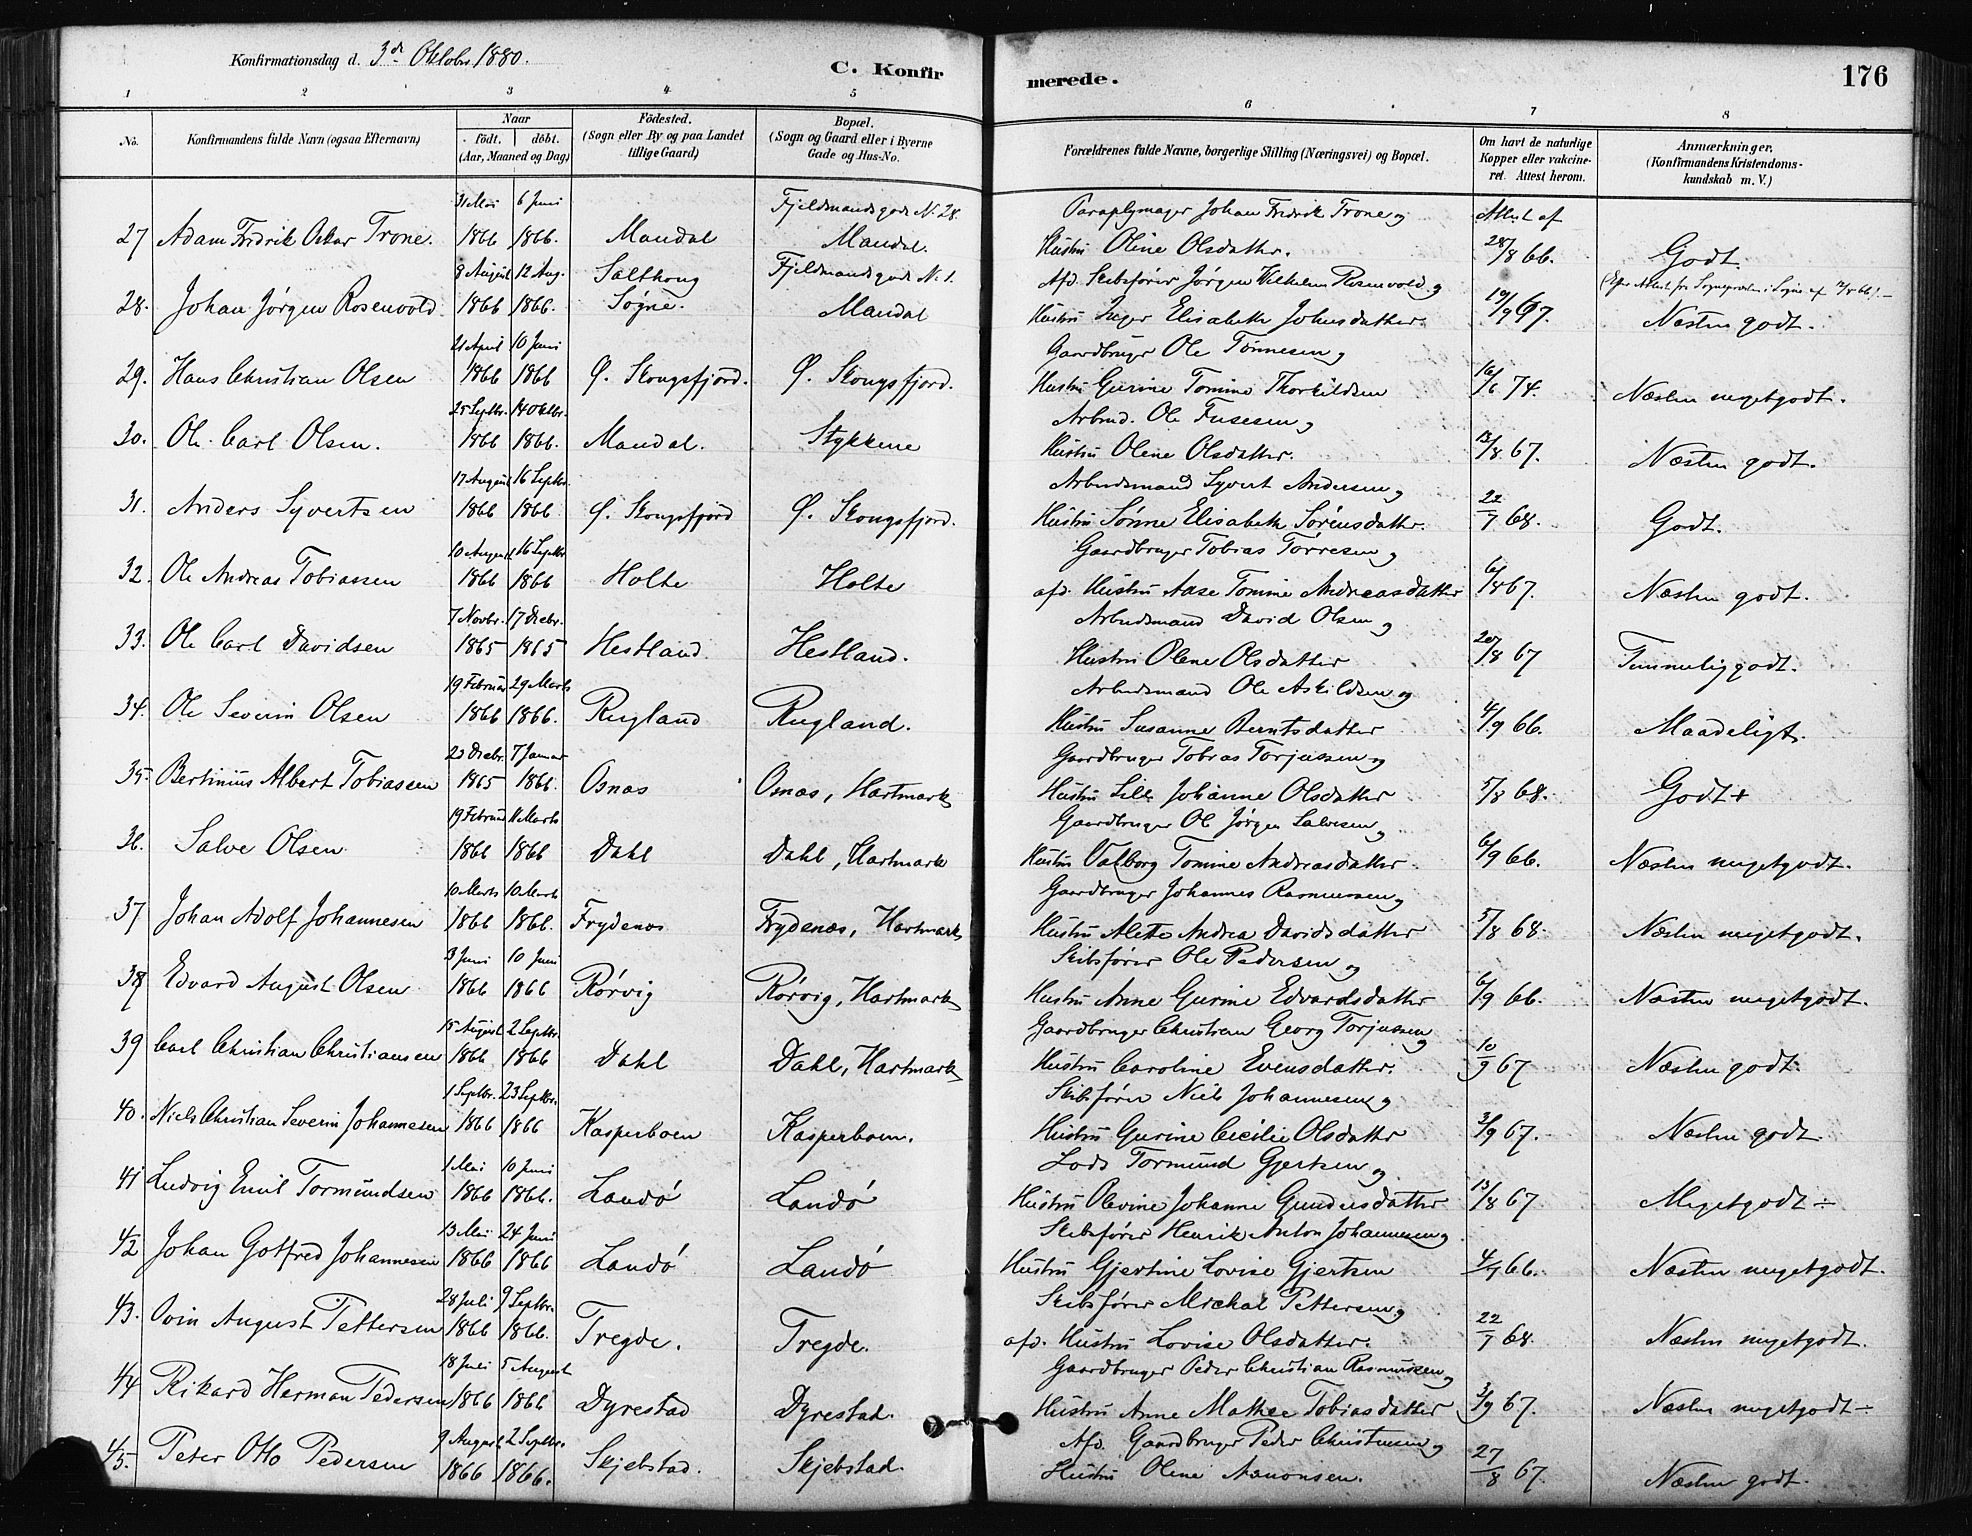 Konfirmationsdag d. 3die Oktober 1880.
C. Konfirmerede.
176
1 2 3 4 5 6 7 8
No. Konfirmandens fulde Navn (ogsaa Efternavn) Naar født. døbt. (Aar, Maaned og Dag) Fødested. (Sogn eller By og paa Landet tillige Gaard) Bopæl. (Sogn og Gaard eller i Byerne Gade og Hus-No. Forældrenes fulde Navne, borgerlige Stilling (Næringsvei) og Bopæl. Om havt de naturlige Kopper eller vakcineret. Attest herom. Anmærkninger. (Konfirmandens Kristendomskundskab m. V.)
31 Mai 6 Juni Fjeldmandsgade N. 28. Paraplymager Johan Fredrik Trone og Attest af
27 Adam Fredrik Oskar Trone. 1866 1866. Mandal Mandal. Hustru Oline Olsdatter. 28/8 66. Godt.
8 August 12 Aug. Salthong Fjeldmandsgade N. 1. Afd. Skibsfører Jørgen Vilhelm Rosenvold og
28. Johan Jørgen Rosenvold 1866 1866. Søgne. Mandal Hustru Inger Elisabeth Johnsdatter. 19/9 67. Næsten godt.
21 April 10 Juni Gaardbruger Ole Tønnesen og
29. Hans Christian Olsen 1866 1866 Ø. Skougsfjord. Ø. Skougsfjord. Hustru Gurine Tomine Thorkildsen 16/6 74. Næsten megetgodt.
25 Septbr. 14 Oktbr. Arbmd. Ole Fusesen og
30. Ole Carl Olsen. 1866 1866. Mandal. Stykkene Hustru Olene Olsdatter. 13/8 67. Næsten godt.
17 August 16 Septbr. Arbeidsmand Syvert Andersen og
31. Anders Syvertsen 1866 1866. Ø. Skougsfjord Ø. Skougsfjord. Hustru Sønne Elisabeth Sørensdatter. 22/7 68. Godt.
10 August 16 Septbr Gaardbruger Tobias Tørresen og
32. Ole Andreas Tobiassen 1866 1866 Holte Holte afd. Hustru Aase Tomine Andreasdatter 6/8 67. Næsten godt.
7 Novbr. 17 Decbr. Arbeidsmand David Olsen og
33. Ole Carl Davidsen 1865 1865 Hestland. Hestland. Hustru Olene Olsdatter 20/8 67 Temmelig godt.
19 Februar 29 Marts Arbeidsmand Ole Askildsen og
34. Ole Severin Olsen 1866 1866. Rugland Rugland. Hustru Susanne Berntsdatter 4/9 66. Maadeligt.
23 Decbr. 7 Januar Gaardbruger Tobias Torjussen og
35. Bertinius Albert Tobiassen 1865 1866. Osnæs Osnæs, Hartmark Hustru Lille Johanne Olsdatter 5/8 68. Godt +
19 Februar 11 Marts Gaardbruger Ole Jørgen Salvesen og
36. Salve Olsen 1866 1866 Dahl Dahl, Hartmark Hustru Valborg Tomine Andreasdatter 6/9 66. Næsten megetgodt.
10 Marts 10 Marts Gaardbruger Johannes Rasmussen og
37 Johan Adolf Johannesen 1866 1866. Frydenæs Frydenæs, Hartmark Hustru Alette Andrea Davidsdatter 5/8 68. Næsten megetgodt.
3 Juni 10 Juni Skibsfører Ole Pedersen og
38 Edvard August Olsen 1866 1866 Rørvig Rørvig, Hartmark Hustru Anne Gurine Edvardsdatter 6/9 66. Næsten megetgodt.
15 August 2 Septbr. Gaardbruger Christian Georg Torjussen og
39 Carl Christian Christiansen 1866 1866 Dahl Dahl, Hartmark Hustru Caroline Evensdatter. 10/9 67 Næsten godt
1 Septbr. 23 Septbr. Skibsfører Niels Johannesen og
40. Niels Christian Severin Johannesen 1866 1866 Kasperboen Kasperboen. Hustru Gurine Cicilie Olsdatter 3/9 67. Næsten godt
1 Mai 10 Juni Lods Tormund Gjertsen og
41 Ludvig Emil Tormundsen 1866 1866. Landø Landø Hustru Olevine Johanne Gundersdatter 13/8 67. Megetgodt ÷
13 Mai 24 Juni Skibsfører Henrik Anton Johannesen og
42 Johan Gotfred Johannesen 1866 1866 Landø Landø Hustru Gjertine Lovise Gjertsen 4/9 66. Næsten megetgodt.
28 Juli 9 Septbr. Skibsfører Michal Pettersen og
43. Ovin August Pettersen 1866 1866. Tregde. Tregde. afd. Hustru Lovise Olsdatter. 22/7 68. Næsten megetgodt.
18 Juli 5 August Gaardbruger Peder Christian Rasmussen og
44 Rikard Herman Pedersen 1866 1866 Dyrestad Dyrestad. Hustru Anne Mathee Tobiasdatter 3/9 67. Næsten megetgodt ÷
9 August 2 Septbr. Afd. Gaardbruger Peder Christensen og
45. Peter Otto Pedersen 1866 1866. Skjebstad. Skjebstad. Hustru Olene Aanonsen. 27/8 67. Næsten godt.